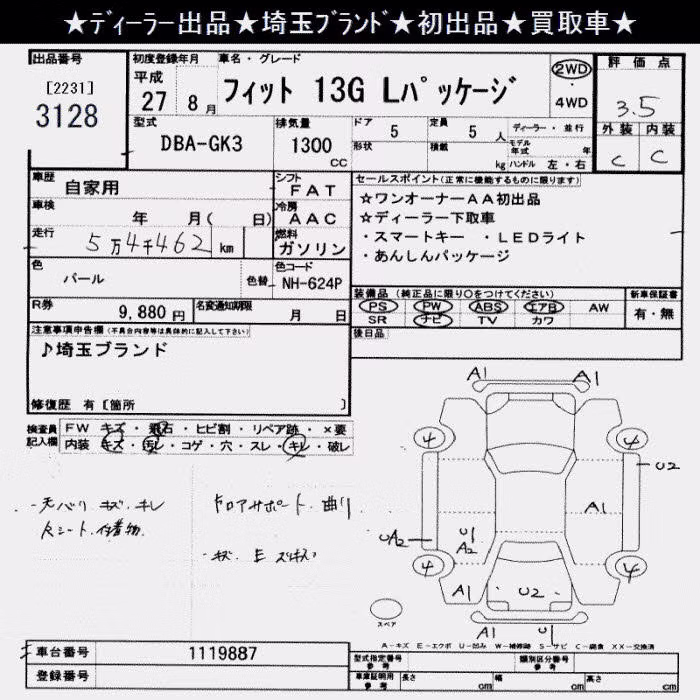 ★ディーラー出品★埼玉ブランド★初出品★買取車★
出品番号
[2231]
3128
初度登録年月
平成
27 8月
車名・グレード
フィット 13G Lパッケージ
2WD
・
4WD
評価点
3.5
外装 内装
C C
型式
DBA-GK3
排気量
1300
CC
ドア 5
形状
定員 5 人
積載 kg
ディーラー・並行
モデル年式 年
ハンドル 左・右
車歴
自家用
車検
年 月( 日)
走行
5万4千462 km
シフト
FAT
冷房
AAC
燃料
ガソリン
セールスポイント(正常に機能するものに限ります)
☆ワンオーナーAA初出品
☆ディーラー下取車
・スマートキー ・LEDライト
・あんしんパッケージ
色
パール
色替
色コード
NH-624P
R券
9,880円
名変通知期限
月 日
装備品 (純正品に限り○をつけてください)
PS PW ABS エアB AW
SR ナビ TV カワ
新車保証書
有・無
後日品
注意事項申告欄(不具合内容等は具体的に記入して下さい)
♪埼玉ブランド
修復歴 有〔箇所 〕
検査員
記入欄
FW キズ・飛石・ヒビ割・リペア跡・×要
内装 キズ・汚レ・コゲ・穴・スレ・キレ・破レ
・天バリ キズ・キレ
Rシート・付着物
ドロアサポート・曲り
・キズ E
A1 A1
4 4
U2
A1
UA2
U1
A2
4 4
A1 U2 A1
A1 U1
スペア
A-キズ E-エクボ U-凹み W-補修跡 S-サビ C-腐食 XX-交換済
車台番号 1119887
登録番号
型式指定番号
参考
類別区分番号
参考
車庫証明用
参考
長さ cm
幅 cm
高さ cm